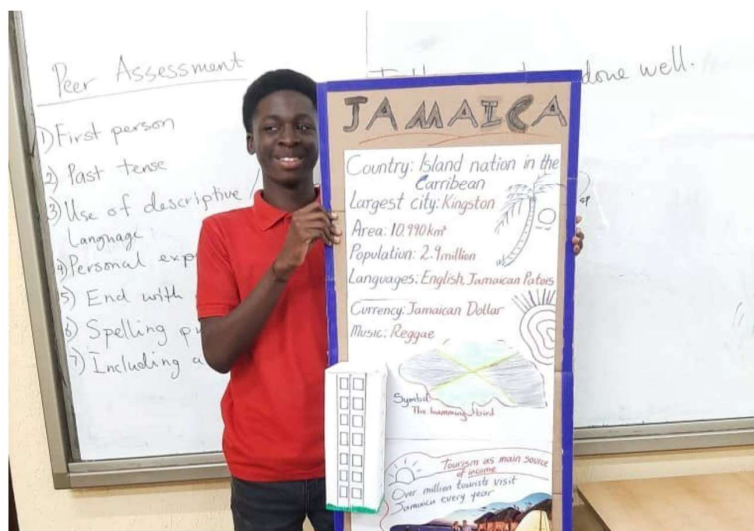 Peer Assessment
1) First person
2) Past tense
3) Use of descriptive
Language
4) Personal exp
5) End with
6) Spelling
7) Including a
done well.
JAMAICA
Country: Island nation in the
Carribean
Largest city: Kingston
Area: 10.990 km²
Population: 2.9 million
Languages: English, Jamaican Patois
Currency: Jamaican Dollar
Music: Reggae
Symbol
The humming bird
Tourism as main source
of income
Over million tourists visit
Jamaica every year